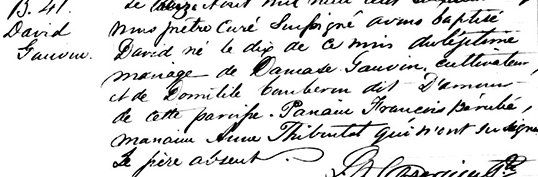 B. 41.
David
Gauvin.
le treize Août mil huit cent
nous prêtre Curé Soussigné avons baptisé
David né le dix de ce mois du légitime
mariage de Damase Gauvin, cultivateur,
et de Domitile dit D'amour
de cette paroisse. Parrain François Bérubé,
marraine Anne Thibautot qui n'ont su signer
Le père absent.
Ptre